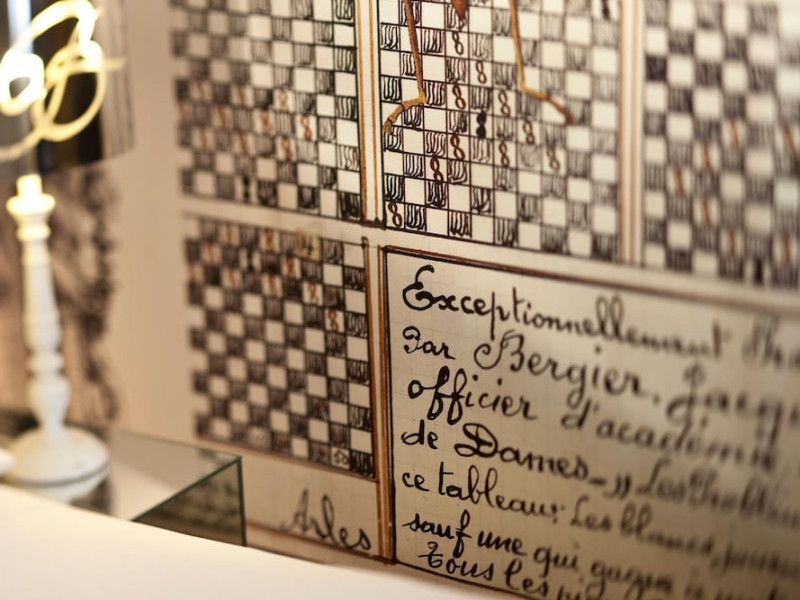 Exceptionnellement
Par Bergier, Jacq
officier d'académie
de Dames_,, Les Problèm
ce tableau: Les blancs,
sauf une qui gagne
Tous les
Arles